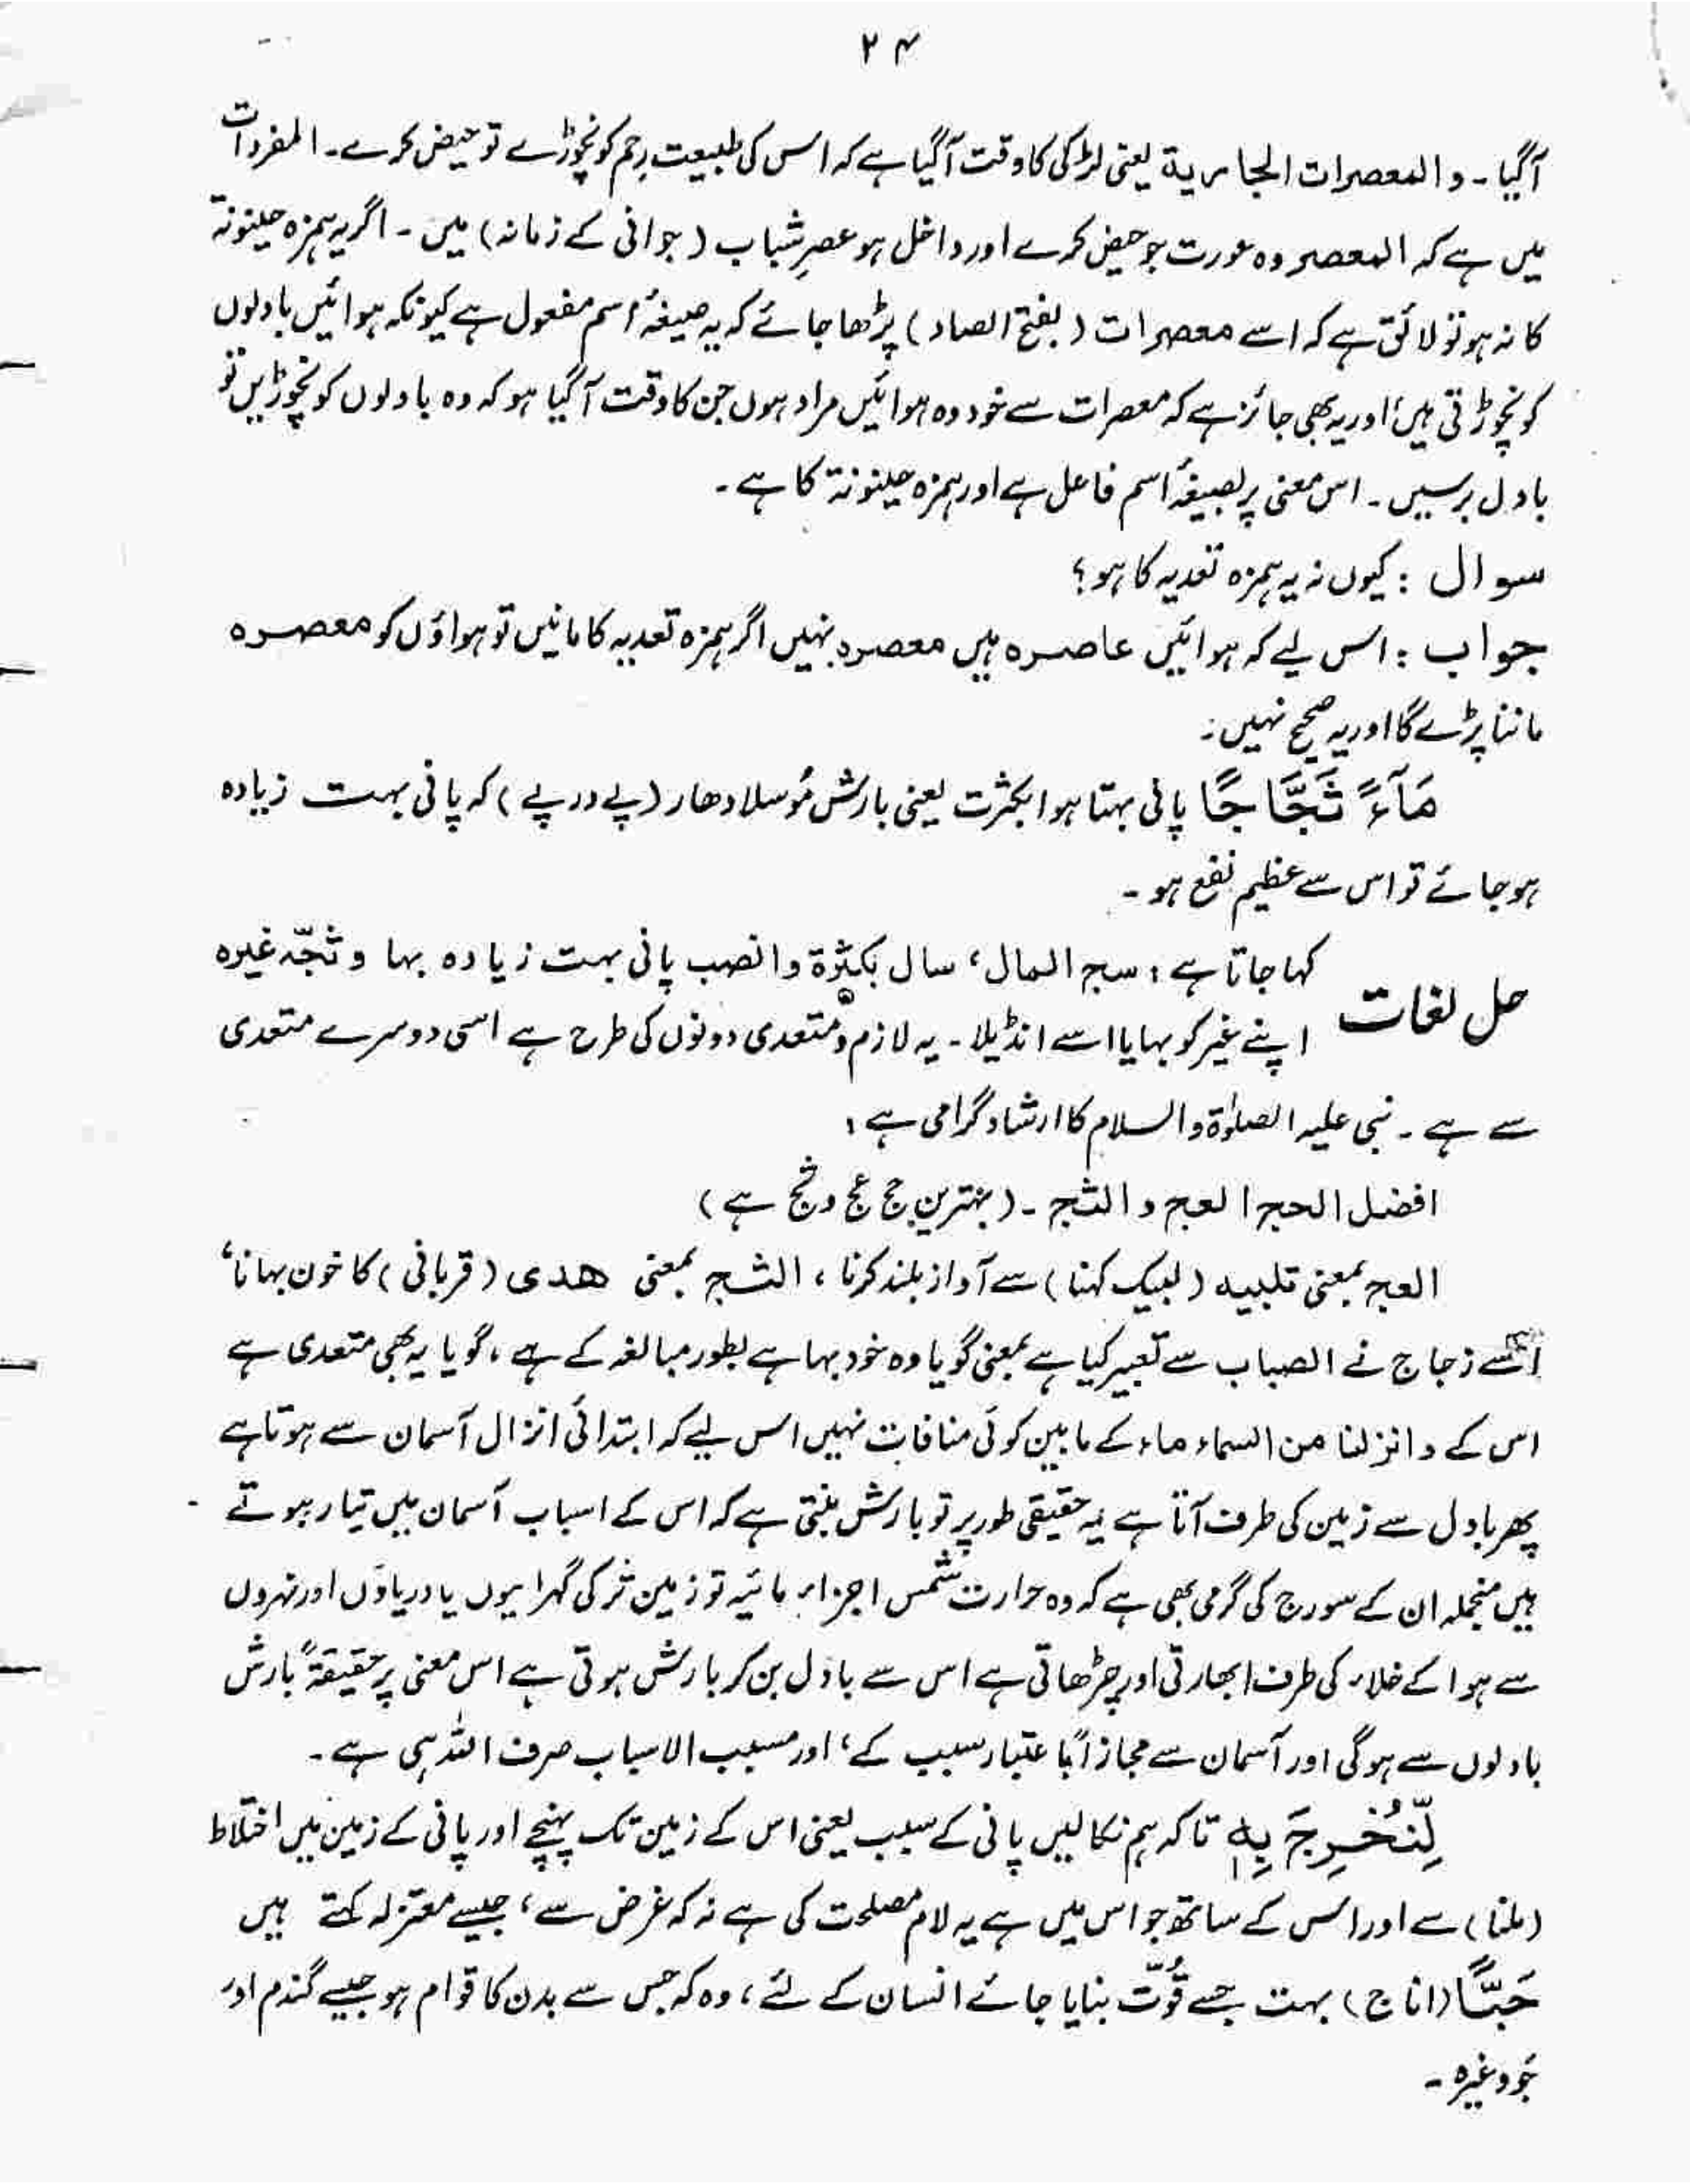 ۲۴
آگیا۔ والمعصرات الجارية یعنی لڑکی کا وقت آگیا ہے کہ اس کی طبیعت رحم کو نچوڑے تو حیض کرے۔ المفردات
میں ہے کہ المعصر وہ عورت جو حیض کرے اور داخل ہو عصرِ شباب (جوانی کے زمانہ) میں۔ اگر یہ ہمزہ حینونۃ
کا نہ ہو تو لائق ہے کہ اسے معصرات (بفتح الصاد) پڑھا جائے کہ یہ صیغۂ اسم مفعول ہے کیونکہ ہوائیں بادلوں
کو نچوڑتی ہیں، اور یہ بھی جائز ہے کہ معصرات سے خود وہ ہوائیں مراد ہوں جن کا وقت آگیا ہو کہ وہ بادلوں کو نچوڑیں تو
بادل برسیں۔ اس معنی پر بصیغۂ اسم فاعل ہے اور ہمزہ حینونۃ کا ہے۔
سوال : کیوں نہ یہ ہمزہ تعدیہ کا ہو؟
جواب : اس لیے کہ ہوائیں عاصرہ ہیں معصرہ نہیں اگر ہمزہ تعدیہ کا مانیں تو ہواؤں کو معصرہ
ماننا پڑے گا اور یہ صحیح نہیں۔
مَآءً ثَجَّاجًا پانی بہتا ہوا بکثرت یعنی بارش مُوسلا دھار (پے در پے) کہ پانی بہت زیادہ
ہو جائے تو اس سے عظیم نفع ہو۔
حل لغات
کہا جاتا ہے : سج المال، سال بکثرة وانصب پانی بہت زیادہ بہا و ثجّہ غیرہ
اپنے غیر کو بہایا اسے انڈیلا۔ یہ لازم و متعدی دونوں کی طرح ہے اسی دوسرے متعدی
سے ہے۔ نبی علیہ الصلوٰۃ والسلام کا ارشاد گرامی ہے :
افضل الحج العج والثج۔ (بہترین حج عج و ثج ہے)
العج بمعنی تلبیہ (لبیک کہنا) سے آواز بلند کرنا، الثج بمعنی ھدی (قربانی) کا خون بہانا،
اسے زجاج نے الصباب سے تعبیر کیا ہے بمعنی گویا وہ خود بہا ہے بطور مبالغہ کے ہے، گویا یہ بھی متعدی ہے
اس کے وانزلنا من السماء ماء کے مابین کوئی منافات نہیں اس لیے کہ ابتدائی انزال آسمان سے ہوتا ہے
پھر بادل سے زمین کی طرف آتا ہے یہ حقیقی طور پر تو بارش بنتی ہے کہ اس کے اسباب آسمان میں تیار ہوتے
ہیں منجملہ ان کے سورج کی گرمی بھی ہے کہ وہ حرارت شمس اجزاء مائیہ تو زمین تر کی گہرائیوں یا دریاؤں اور نہروں
سے ہوا کے خلاء کی طرف ابھارتی اور چڑھاتی ہے اس سے بادل بن کر بارش ہوتی ہے اس معنی پر حقیقۃً بارش
بادلوں سے ہوگی اور آسمان سے مجازاً باعتبار سبب کے، اور مسبب الاسباب صرف اللہ ہی ہے۔
لِّنُخْرِجَ بِهٖ تاکہ ہم نکالیں پانی کے سبب یعنی اس کے زمین تک پہنچے اور پانی کے زمین میں اختلاط
(ملنا) سے اور اس کے ساتھ جو اس میں ہے یہ لام مصلحت کی ہے نہ کہ غرض سے، جیسے معتزلہ کہتے ہیں
حَبًّا (اناج) بہت جسے قُوّت بنایا جائے انسان کے لئے، وہ کہ جس سے بدن کا قوام ہو جیسے گندم اور
جَو وغیرہ۔